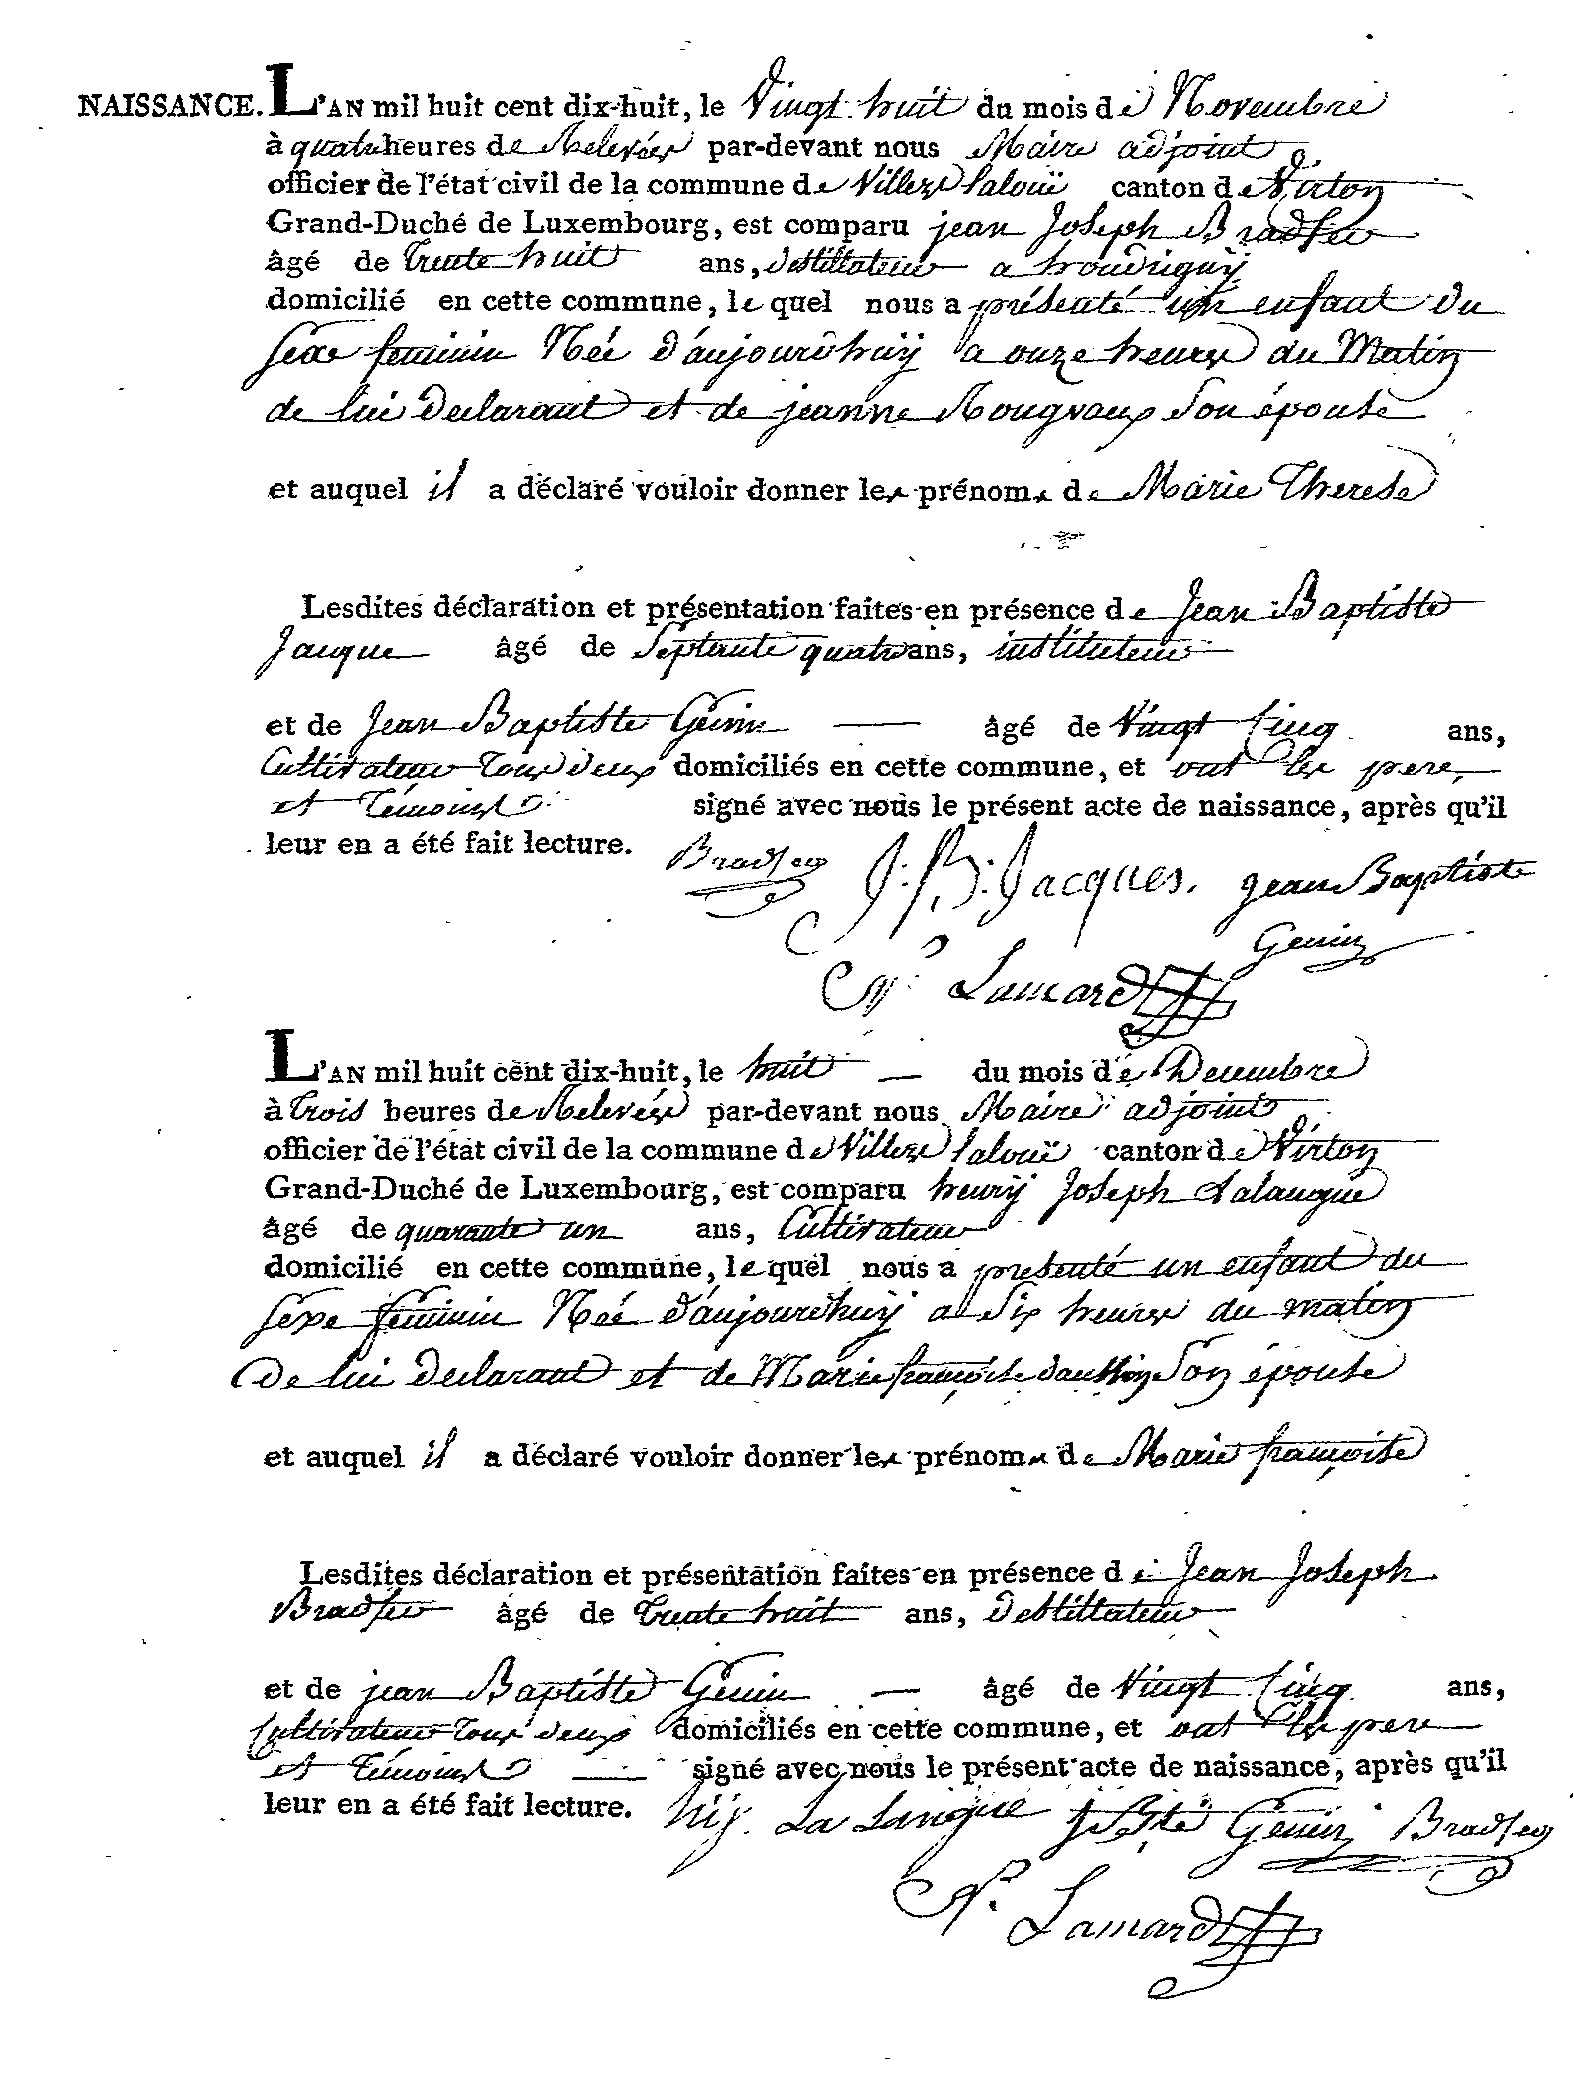 NAISSANCE. L'AN mil huit cent dix-huit, le Vingt huit du mois de Novembre
à quatre heures de Relevée par-devant nous Maire adjoint
officier de l'état civil de la commune de Villers Laloüe canton de Virton
Grand-Duché de Luxembourg, est comparu jean Joseph Bradfer
âgé de Trente huit ans, distillateur a houdrigny
domicilié en cette commune, le quel nous a présenté un enfant du
sexe feminin Née d'aujourdhuy a onze heures du Matin
de lui declarant et de jeanne Rongvaux Son épouse
et auquel il a déclaré vouloir donner les prénoms de Marie Therese
Lesdites déclaration et présentation faites en présence de Jean Baptiste
Jacque âgé de Septante quatre ans, instituteur
et de Jean Baptiste Génin âgé de Vingt Cinq ans,
Cultivateur Tous deux domiciliés en cette commune, et ont les pere
et Témoins signé avec nous le présent acte de naissance, après qu'il
leur en a été fait lecture. Bradfer J: B: Jacques. jean Baptiste
Genin
N. Lamard
L'AN mil huit cent dix-huit, le huit du mois de Decembre
à Trois heures de Relevée par-devant nous Maire adjoint
officier de l'état civil de la commune de Villers Laloüe canton de Virton
Grand-Duché de Luxembourg, est comparu henry Joseph Lalangue
âgé de quarante un ans, Cultivateur
domicilié en cette commune, le quel nous a presenté un enfant du
sexe feminin Née d'aujourdhuy a Six heures du matin
De lui declarant et de Marie françoise Son épouse
et auquel il a déclaré vouloir donner les prénoms de Marie françoise
Lesdites déclaration et présentation faites en présence de Jean Joseph
Bradfer âgé de Trente huit ans, Distillateur
et de jean Baptiste Génin âgé de Vingt Cinq ans,
Cultivateur Tous deux domiciliés en cette commune, et ont les pere
et Témoins signé avec nous le présent acte de naissance, après qu'il
leur en a été fait lecture. h.j. La Langue j Bte Génin Bradfer
N. Lamard